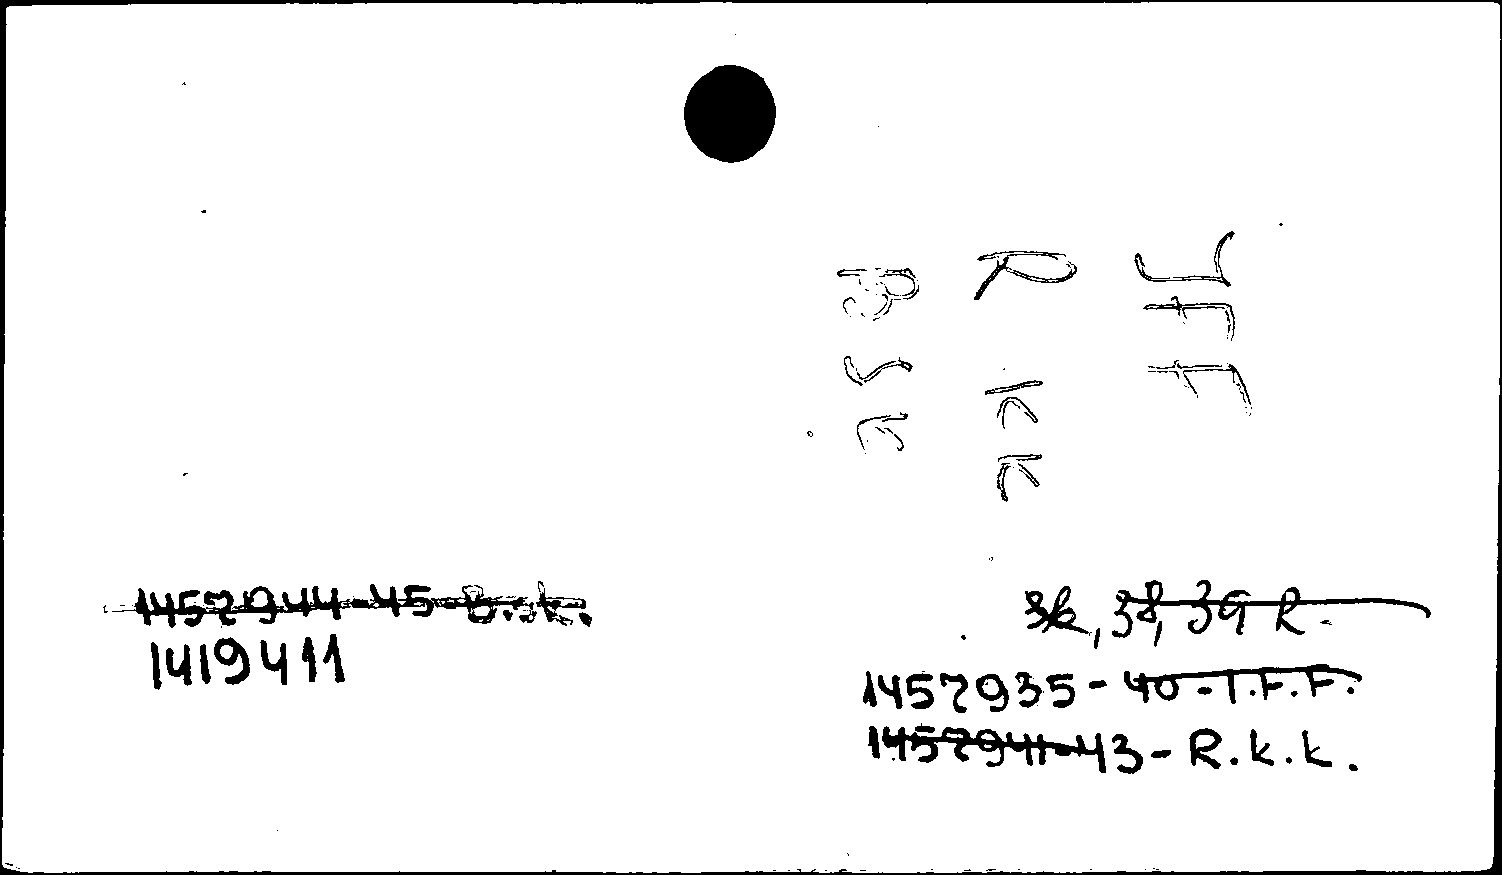 T F F
R K K
B S K
1457944-45-B.s.k.
1419411
36, 38, 39 R.
1457935-40-T.F.F.
1457941-43-R.k.k.